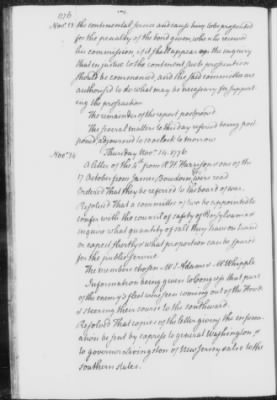 1776
Nov. 13 the continental service and cargo being to be prosecuted
for the penalty of the bond given, who who received
his commission, if it shall appear upon the inquiry
that in justice to the continent such prosecution
should be commenced, and the said committee are
authorised to do what may be necessary for support
ing the prosecution
The remainder of the report postponed
The several matters to this day referred being post
poned, adjourned to 10 oclock to morrow
Thursday Nov. 14. 1776
Nov. 14 A letter of the 4th from R. H. Harrison & one of the
17 October from James Bowdoin were read
Ordered That they be referred to the board of war.
Resolved That a committee of two be appointed to
confer with the council of safety of Pensylvania &
inquire what quantity of salt they have on hand
or expect shortly & what proportion can be spared
for the public service.
The members chosen Mr S. Adams & Mr Whipple
Information being given to Congress that part
of the enemy's fleet was seen coming out of the Hook
& steering their course to the southward.
Resolved That copies of the letter giving the inform
ation be sent by express to general Washington &
to governor Livingston of New Jersey & also to the
southern states.